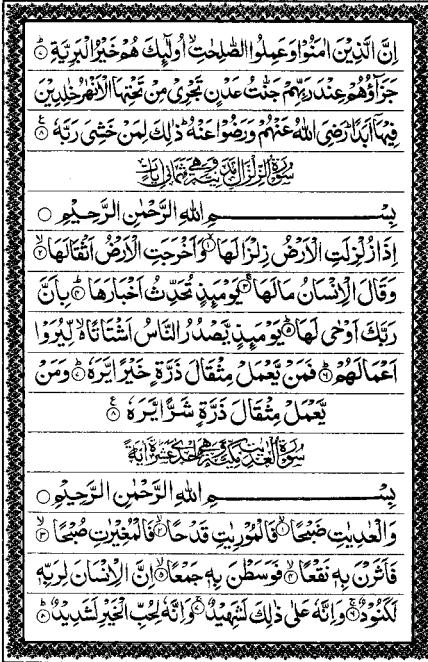 اِنَّ الَّذِيْنَ اٰمَنُوْا وَعَمِلُوا الصّٰلِحٰتِ ۙ اُولٰٓئِكَ هُمْ خَيْرُ الْبَرِيَّةِ ﴿۷﴾
جَزَآؤُهُمْ عِنْدَ رَبِّهِمْ جَنّٰتُ عَدْنٍ تَجْرِيْ مِنْ تَحْتِهَا الْاَنْهٰرُ خٰلِدِيْنَ
فِيْهَآ اَبَدًا ؕ رَضِيَ اللّٰهُ عَنْهُمْ وَرَضُوْا عَنْهُ ؕ ذٰلِكَ لِمَنْ خَشِيَ رَبَّهٗ ﴿۸﴾
سُوْرَةُ الزِّلْزَالِ مَدَنِيَّةٌ وَّهِيَ ثَمَانِيْ اٰيَاتٍ
بِسْمِ اللّٰهِ الرَّحْمٰنِ الرَّحِيْمِ ○
اِذَا زُلْزِلَتِ الْاَرْضُ زِلْزَالَهَا ﴿۱﴾ وَاَخْرَجَتِ الْاَرْضُ اَثْقَالَهَا ﴿۲﴾
وَقَالَ الْاِنْسَانُ مَا لَهَا ﴿۳﴾ يَوْمَئِذٍ تُحَدِّثُ اَخْبَارَهَا ﴿۴﴾ بِاَنَّ
رَبَّكَ اَوْحٰى لَهَا ﴿۵﴾ يَوْمَئِذٍ يَّصْدُرُ النَّاسُ اَشْتَاتًا ۙ لِّيُرَوْا
اَعْمَالَهُمْ ﴿۶﴾ فَمَنْ يَّعْمَلْ مِثْقَالَ ذَرَّةٍ خَيْرًا يَّرَهٗ ﴿۷﴾ وَمَنْ
يَّعْمَلْ مِثْقَالَ ذَرَّةٍ شَرًّا يَّرَهٗ ﴿۸﴾
سُوْرَةُ الْعٰدِيٰتِ مَكِّيَّةٌ وَّهِيَ اِحْدٰى عَشْرَةَ اٰيَةً
بِسْمِ اللّٰهِ الرَّحْمٰنِ الرَّحِيْمِ ○
وَالْعٰدِيٰتِ ضَبْحًا ﴿۱﴾ فَالْمُوْرِيٰتِ قَدْحًا ﴿۲﴾ فَالْمُغِيْرٰتِ صُبْحًا ﴿۳﴾
فَاَثَرْنَ بِهٖ نَقْعًا ﴿۴﴾ فَوَسَطْنَ بِهٖ جَمْعًا ﴿۵﴾ اِنَّ الْاِنْسَانَ لِرَبِّهٖ
لَكَنُوْدٌ ﴿۶﴾ وَاِنَّهٗ عَلٰى ذٰلِكَ لَشَهِيْدٌ ﴿۷﴾ وَاِنَّهٗ لِحُبِّ الْخَيْرِ لَشَدِيْدٌ ﴿۸﴾